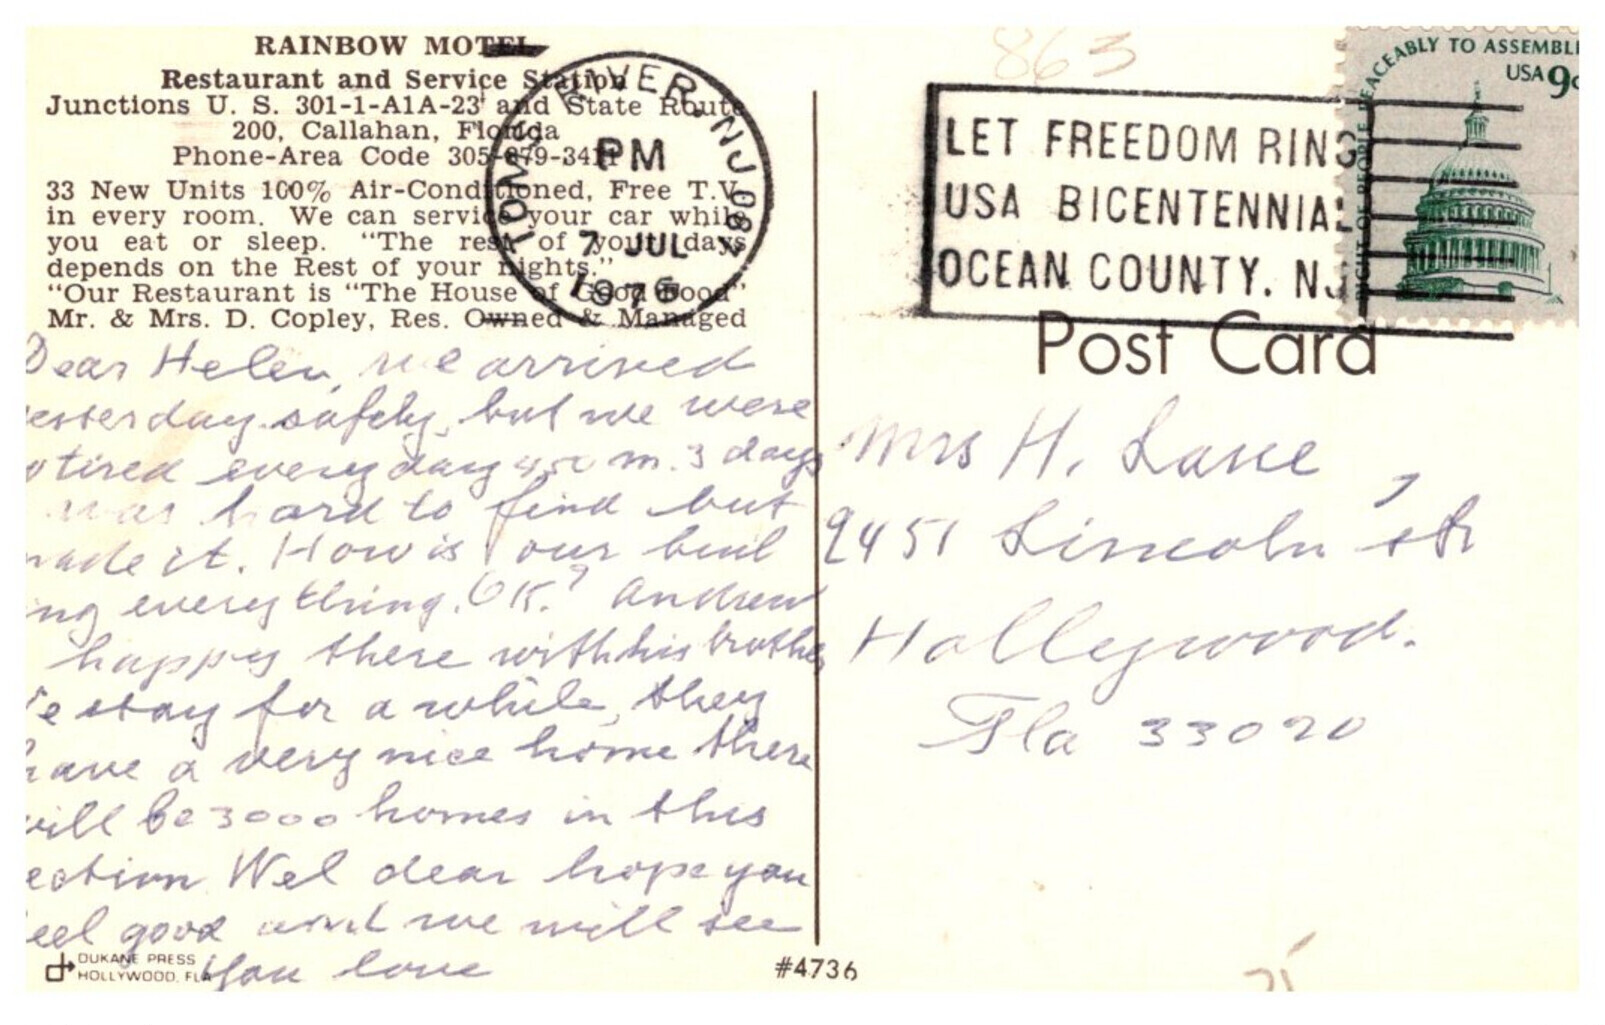 RAINBOW MOTEL
Restaurant and Service Station
Junctions U. S. 301-1-A1A-23 and State Route
200, Callahan, Florida
Phone-Area Code 305-879-3411
33 New Units 100% Air-Conditioned, Free T.V.
in every room. We can service your car while
you eat or sleep. "The rest of your days
depends on the Rest of your nights."
"Our Restaurant is "The House of Good Food"
Mr. & Mrs. D. Copley, Res. Owned & Managed
TOMS RIVER, NJ 087
PM
7 JUL
1976
863
LET FREEDOM RING
USA BICENTENNIAL
OCEAN COUNTY. NJ
PEACEABLY TO ASSEMBLE
USA 9c
RIGHT OF PEOPLE
Post Card
Dear Helen, we arrived
esterday safely, but we were
o tired everyday 450 m. 3 days
was hard to find but
made it. How is our buil
ng everything. OK? Andrew
happy there with his brother
e stay for a while, they
have a very nice home there
will be 3000 homes in this
ection Wel dear hope you
eel good and we will see
you love
Mrs H. Lane,
2451 Lincoln str
Hollywood.
Fla 33020
DUKANE PRESS
HOLLYWOOD, FLA
#4736